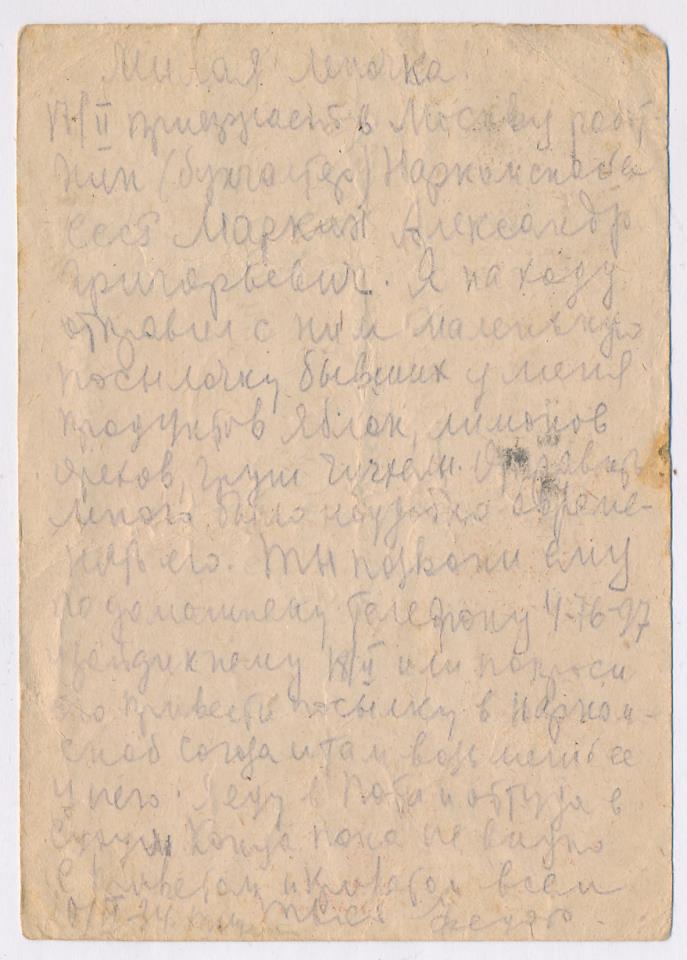 Милая Леночка!
17/II приезжает в Москву работ-
ник (бухгалтер) Наркомснаба
СССР Маркин Александр
Григорьевич. Я на ходу
отправил с ним маленькую
посылочку бывших у меня
продуктов яблок, лимонов
орехов, груш Отправлять
много было неудобно обреме-
нять его. Ты позвони ему
по домашнему телефону 4-76-97
и зайди к нему 18/II или попроси
его привести посылку в Нарком-
снаб Союза и там возьмешь ее
у него. Я еду в Поти и оттуда в
Сухум Конца пока не видно
С приветом и всем
34 Твой